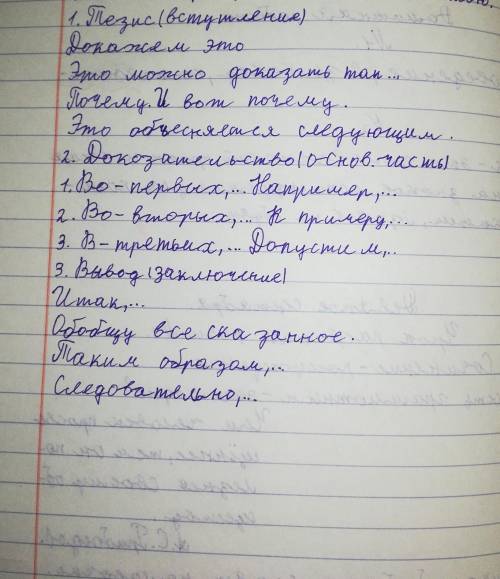 1. Тезис (вступление)
Докажем это
Это можно доказать так...
Почему. И вот почему.
Это объесняется следующим.
2. Докозательство (основ. часть)
1. Во-первых,... Например,...
2. Во-вторых,... К примеру,...
3. В-третьих,... Допустим,..
3. Вывод (заключение)
Итак,...
Обобщу все сказанное.
Таким образам,...
Следовательно,...